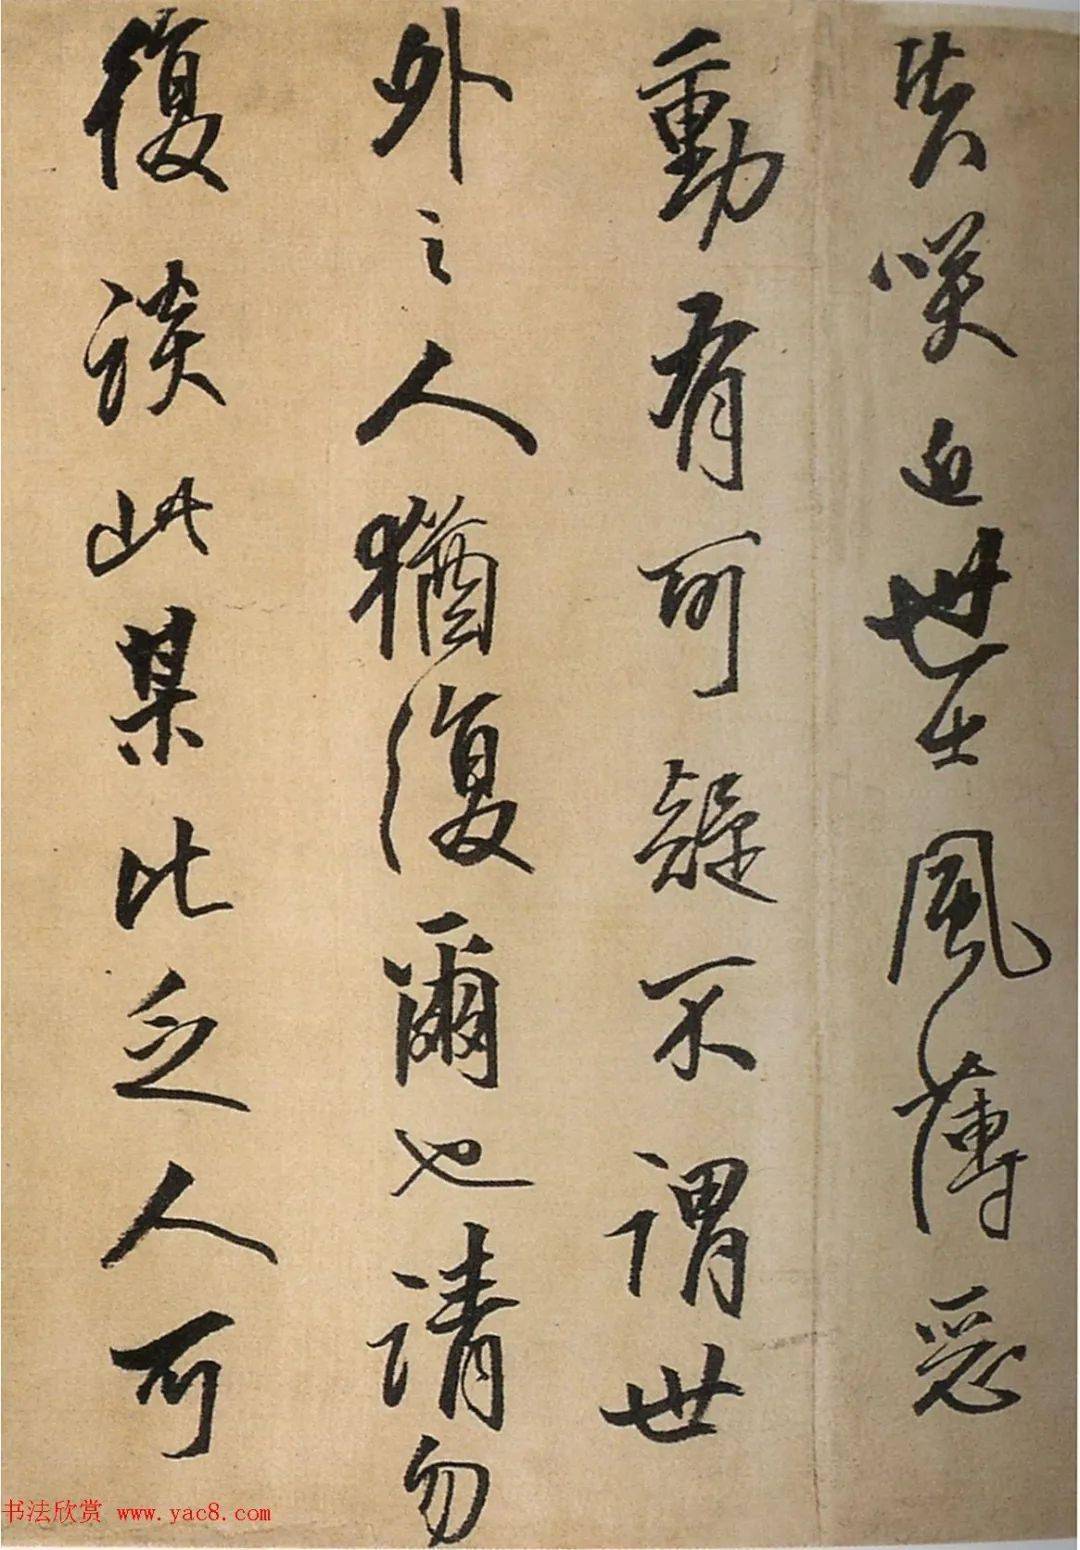 失咲近世士風薄惡
動有可疑不謂世
外之人猶復爾也請勿
復談此某比乏人可
书法欣赏 www.yac8.com